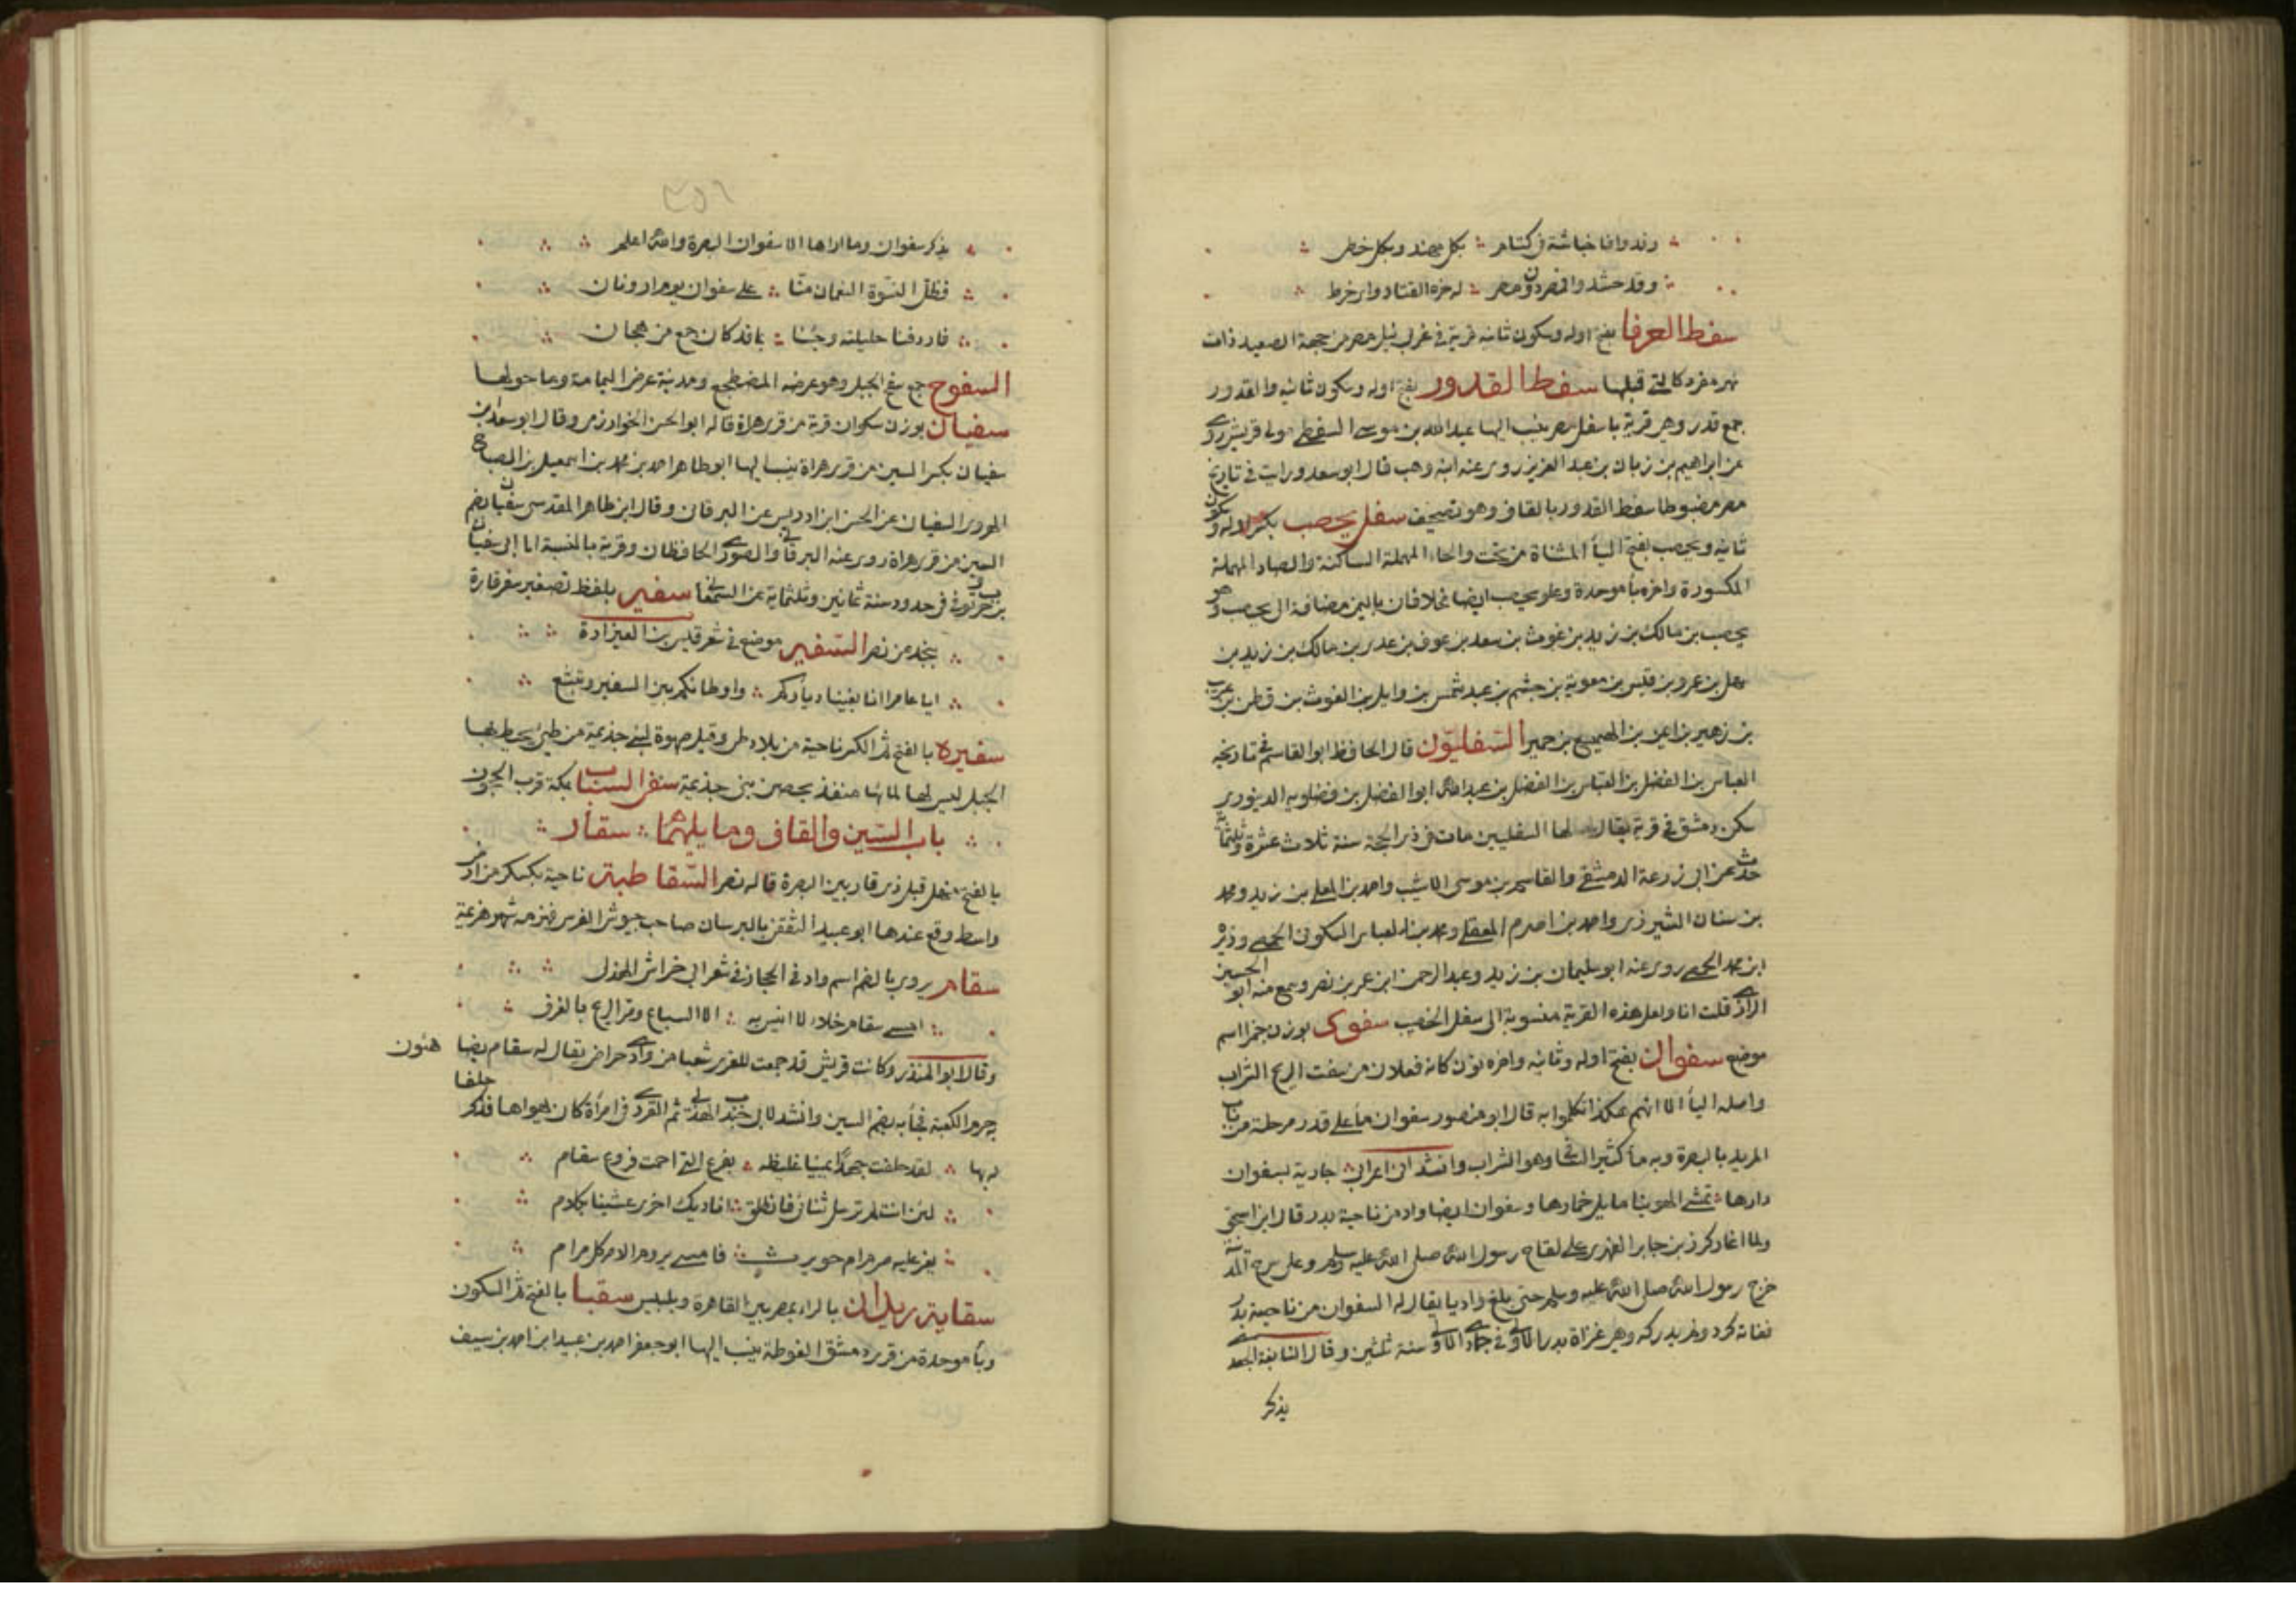 وقدوافا خباشة فى كتام بكل مهند وبكل خطى
وقد حشدوا الخضر دون مصر له خرط القتاد واى خرط
سفط العرفا بفتح اوله وسكون ثانيه قرية فى غربى نيل مصر من جهة الصعيد ذات
نهر مفرد كالتى قبلها سفط القدور بفتح اوله وسكون ثانيه والقدور
جمع قدر وهى قرية باسفل مصر ينسب اليها عبدالله بن موسى السفطى مولى قريش روى
عن ابراهيم بن زبان بن عبد العزيز روى عنه ابن وهب قال ابو سعد ورايت فى تاريخ
مصر مضبوطا سقط القدور بالقاف وهو تصحيف سفل يحصب بكسر اوله وسكون
ثانيه ويحصب بفتح اليا المثناة من تحت والحاء المهملة الساكنة والصاد المهملة
المكسورة واخره با موحدة وعلو يحصب ايضا مخلافان باليمن مضافة الى يحصب وهو
يحصب بن مالك بن زيد بن غوث بن سعد بن عوف بن عدى بن مالك بن زيد بن
سهل بن عمرو بن قيس بن معوية بن جشم بن عبد شمس بن وايل بن الغوث بن قطن بن عريب
بن زهير بن ايمن بن الهميسع بن حمير السفليون قال الحافظ ابو القاسم فى تاريخه
العباس بن الفضل بن العباس بن الفضل بن عبدالله ابو الفضل بن فضلويه الدينورى
سكن دمشق فى قرية يقال لها السفليين مات فى ذى الحجة سنة ثلاث عشرة وثلثمائة
حدث عن ابى زرعة الدمشقى والقاسم بن موسى الاشيب واحمد بن المعلى بن زيد ومحمد
بن سنان الشيرزى واحمد بن اصرم المعقلى ومحمد بن العباس السكونى الحمصى ووزير
ابن محمد الحمصى روى عنه ابو سليمان بن زيد وعبد الرحمن ابن عمر بن نصر وسمع منه ابو الحسين
الرازى قلت انا ولعل هذه القرية منسوبة الى سفل الخصب سفوى بوزن جمزا اسم
موضع سفوان بفتح اوله وثانيه واخره نون كانه فعلان من سفت الريح التراب
واصله اليا الا انهم هكذا تكلموا به قال ابو منصور سفوان ما على قدر مرحلة من باب
المربد بالبصرة وبه ما كثير السفا وهو التراب وانشد انى اعرابى جارية بسفوان
دارها تمشى الهوينا مايل خمارها وسفوان ايضا واد من ناحية بدر قال ابن اسحق
ولما اغار كرز بن جابر الفهرى على لقاح رسول الله صلى الله عليه وسلم وعلى سرح المدينة
خرج رسول الله صلى الله عليه وسلم حتى بلغ واديا يقال له السفوان من ناحية بدر
ففاته كرز ولم يدركه وهى غزاة بدر الاولى فى جمادى الاولى سنة ثلثين وقال النابغة الجعدى
يذكر
٢٥٦
يذكر سفوان وما اراها الا سفوان البصرة والله اعلم
فظل النسوة النعمان منا على سفوان يوم ارونان
فاردفنا حليلته وجئنا بما قد كان جمع من هجان
السفوح جمع سفح الجبل وهو عرضه المضطجع ومدينة عرض اليمامة وما حولها
سفيان بوزن سكران قرية من قرى هراة قاله ابو الحسن الخوارزمى وقال ابو سعد بن
سفيان بكسر السين من قرى هراة ينسب اليها ابو طاهر احمد بن محمد بن اسمعيل بن الصباح
الهروى السفيانى عن الحسن ابن ادريس عن البرقانى وقال ابن طاهر المقدسى سفيان بضم
السين من قرى هراة روى عنه البرقانى والصورى الحافظان وقرية بالنسبة اما الى سفيان
فى حدود سنة ثمانين وثلثماية سفير بلفظ تصغير سفر قارة
بنجد عن نصر السفير موضع فى شعر قيس بن العيزارة
ايا عامرا انا بغينا دياركم واوطانكم بين السفير وتبشع
سفيره بالفتح ثم الكسر ناحية من بلاد طى وقيل صهوة لبنى جذيمة من طى يحيط بها
الجبل ليس لها لمائها منفذ بحصن بنى جذيمة سفر السباب بمكة قرب الحجون
باب السين والقاف وما يليهما سقار
بالفتح منهل قبل ذى قار بين البصرة قاله نصر السقاطية ناحية بكسكر من ارض
واسط وقع عندها ابو عبيد الثقفى بالنرسيان صاحب جيوش الفرس فهزمه شر هزيمة
سقام يروى بالضم اسم واد فى الحجاز فى شعر ابى خراش الهذلى
امسى سقام خلاء لا انيس به الا السباع ومر الريح بالغرف
وقال ابو المنذر وكانت قريش قد حمت للعزى شعبا من وادى حراض يقال له سقام يضاهئون
به حرم الكعبة فجا به بضم السين وانشد لابى جندب الهذلى ثم القردى فى امرأة كان يهواها فذكر حلفا
له بها لقد حلفت جهدا يمينا غليظة بفرع التى احمت فروع سقام
لئن انت لم ترسل ثيابى فانطلق اناديك اخرى عيشنا بكلام
يعز عليه صرم ام حويرث فامسى يروم الامر كل مرام
سقاية ريدان بالراء بمصر بين القاهرة وبلبيس سقبا بالفتح ثم السكون
وبا موحدة من قرى دمشق الغوطة ينسب اليها ابو جعفر احمد بن عبيد ابن احمد بن سيف